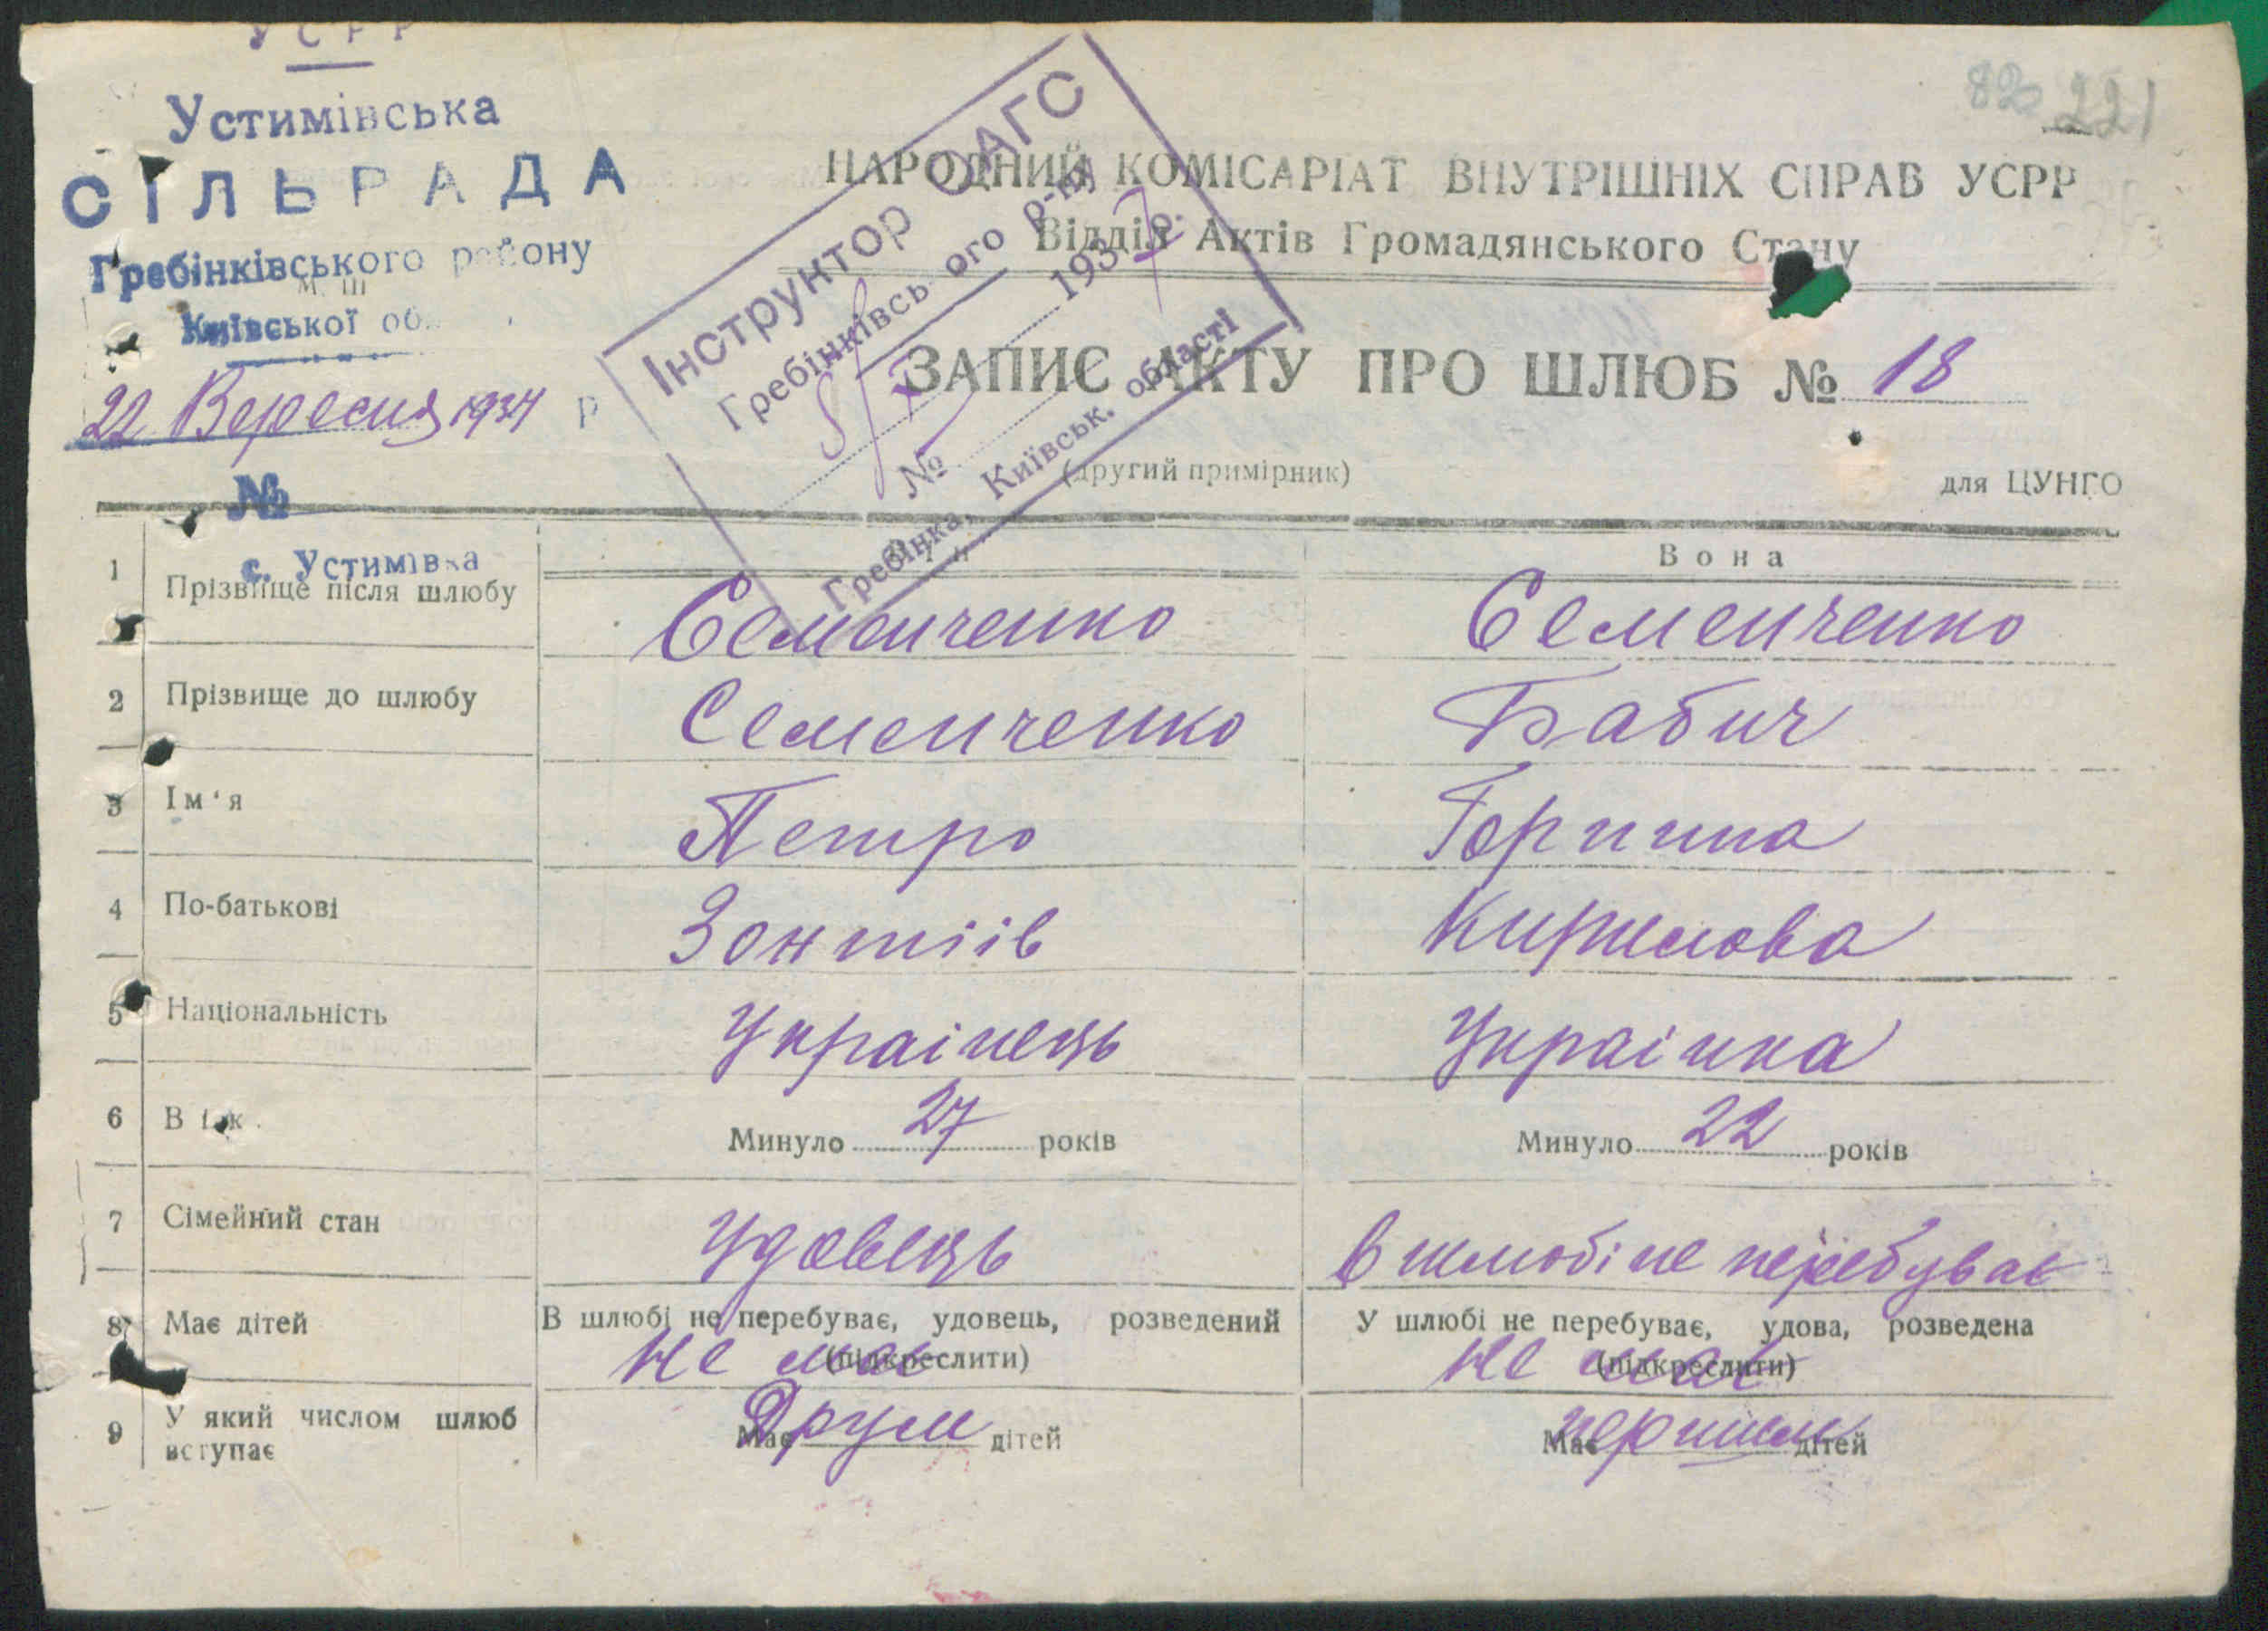 УСРР
Устимівська
СІЛЬРАДА
Гребінківського району
Київської об
22 Вересня 1934 р
№
с. Устимівка
820 221
Інструктор ОАГС
Гребінківсь ого р-ну
8/X 1937 р.
№
Гребінка, Київськ. області
НАРОДНИЙ КОМІСАРІАТ ВНУТРІШНІХ СПРАВ УСРР
Відділ Актів Громадянського Стану
ЗАПИС АКТУ ПРО ШЛЮБ № 18
(другий примірник)
для ЦУНГО
Вона
1 Прізвище після шлюбу Семенченко Семенченко
2 Прізвище до шлюбу Семенченко Бабич
3 Ім'я Петро Горпина
4 По-батькові Зонтіів Кирилова
5 Національність Українець Українка
6 Вік Минуло 27 років Минуло 22 років
7 Сімейний стан Удовець В шлюбі не перебуває
В шлюбі не перебуває, удовець, розведений У шлюбі не перебуває, удова, розведена
(підкреслити) (підкреслити)
8 Має дітей не має не має
Має дітей Має дітей
9 У який числом шлюб вступає Другий першим